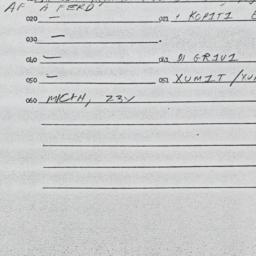 AF A FERD
020 — 021 1 KOPITI
030 —
040 — 041 DI GRIVI
050 — 051 XUMIT /XU
060 MICAN, 23V